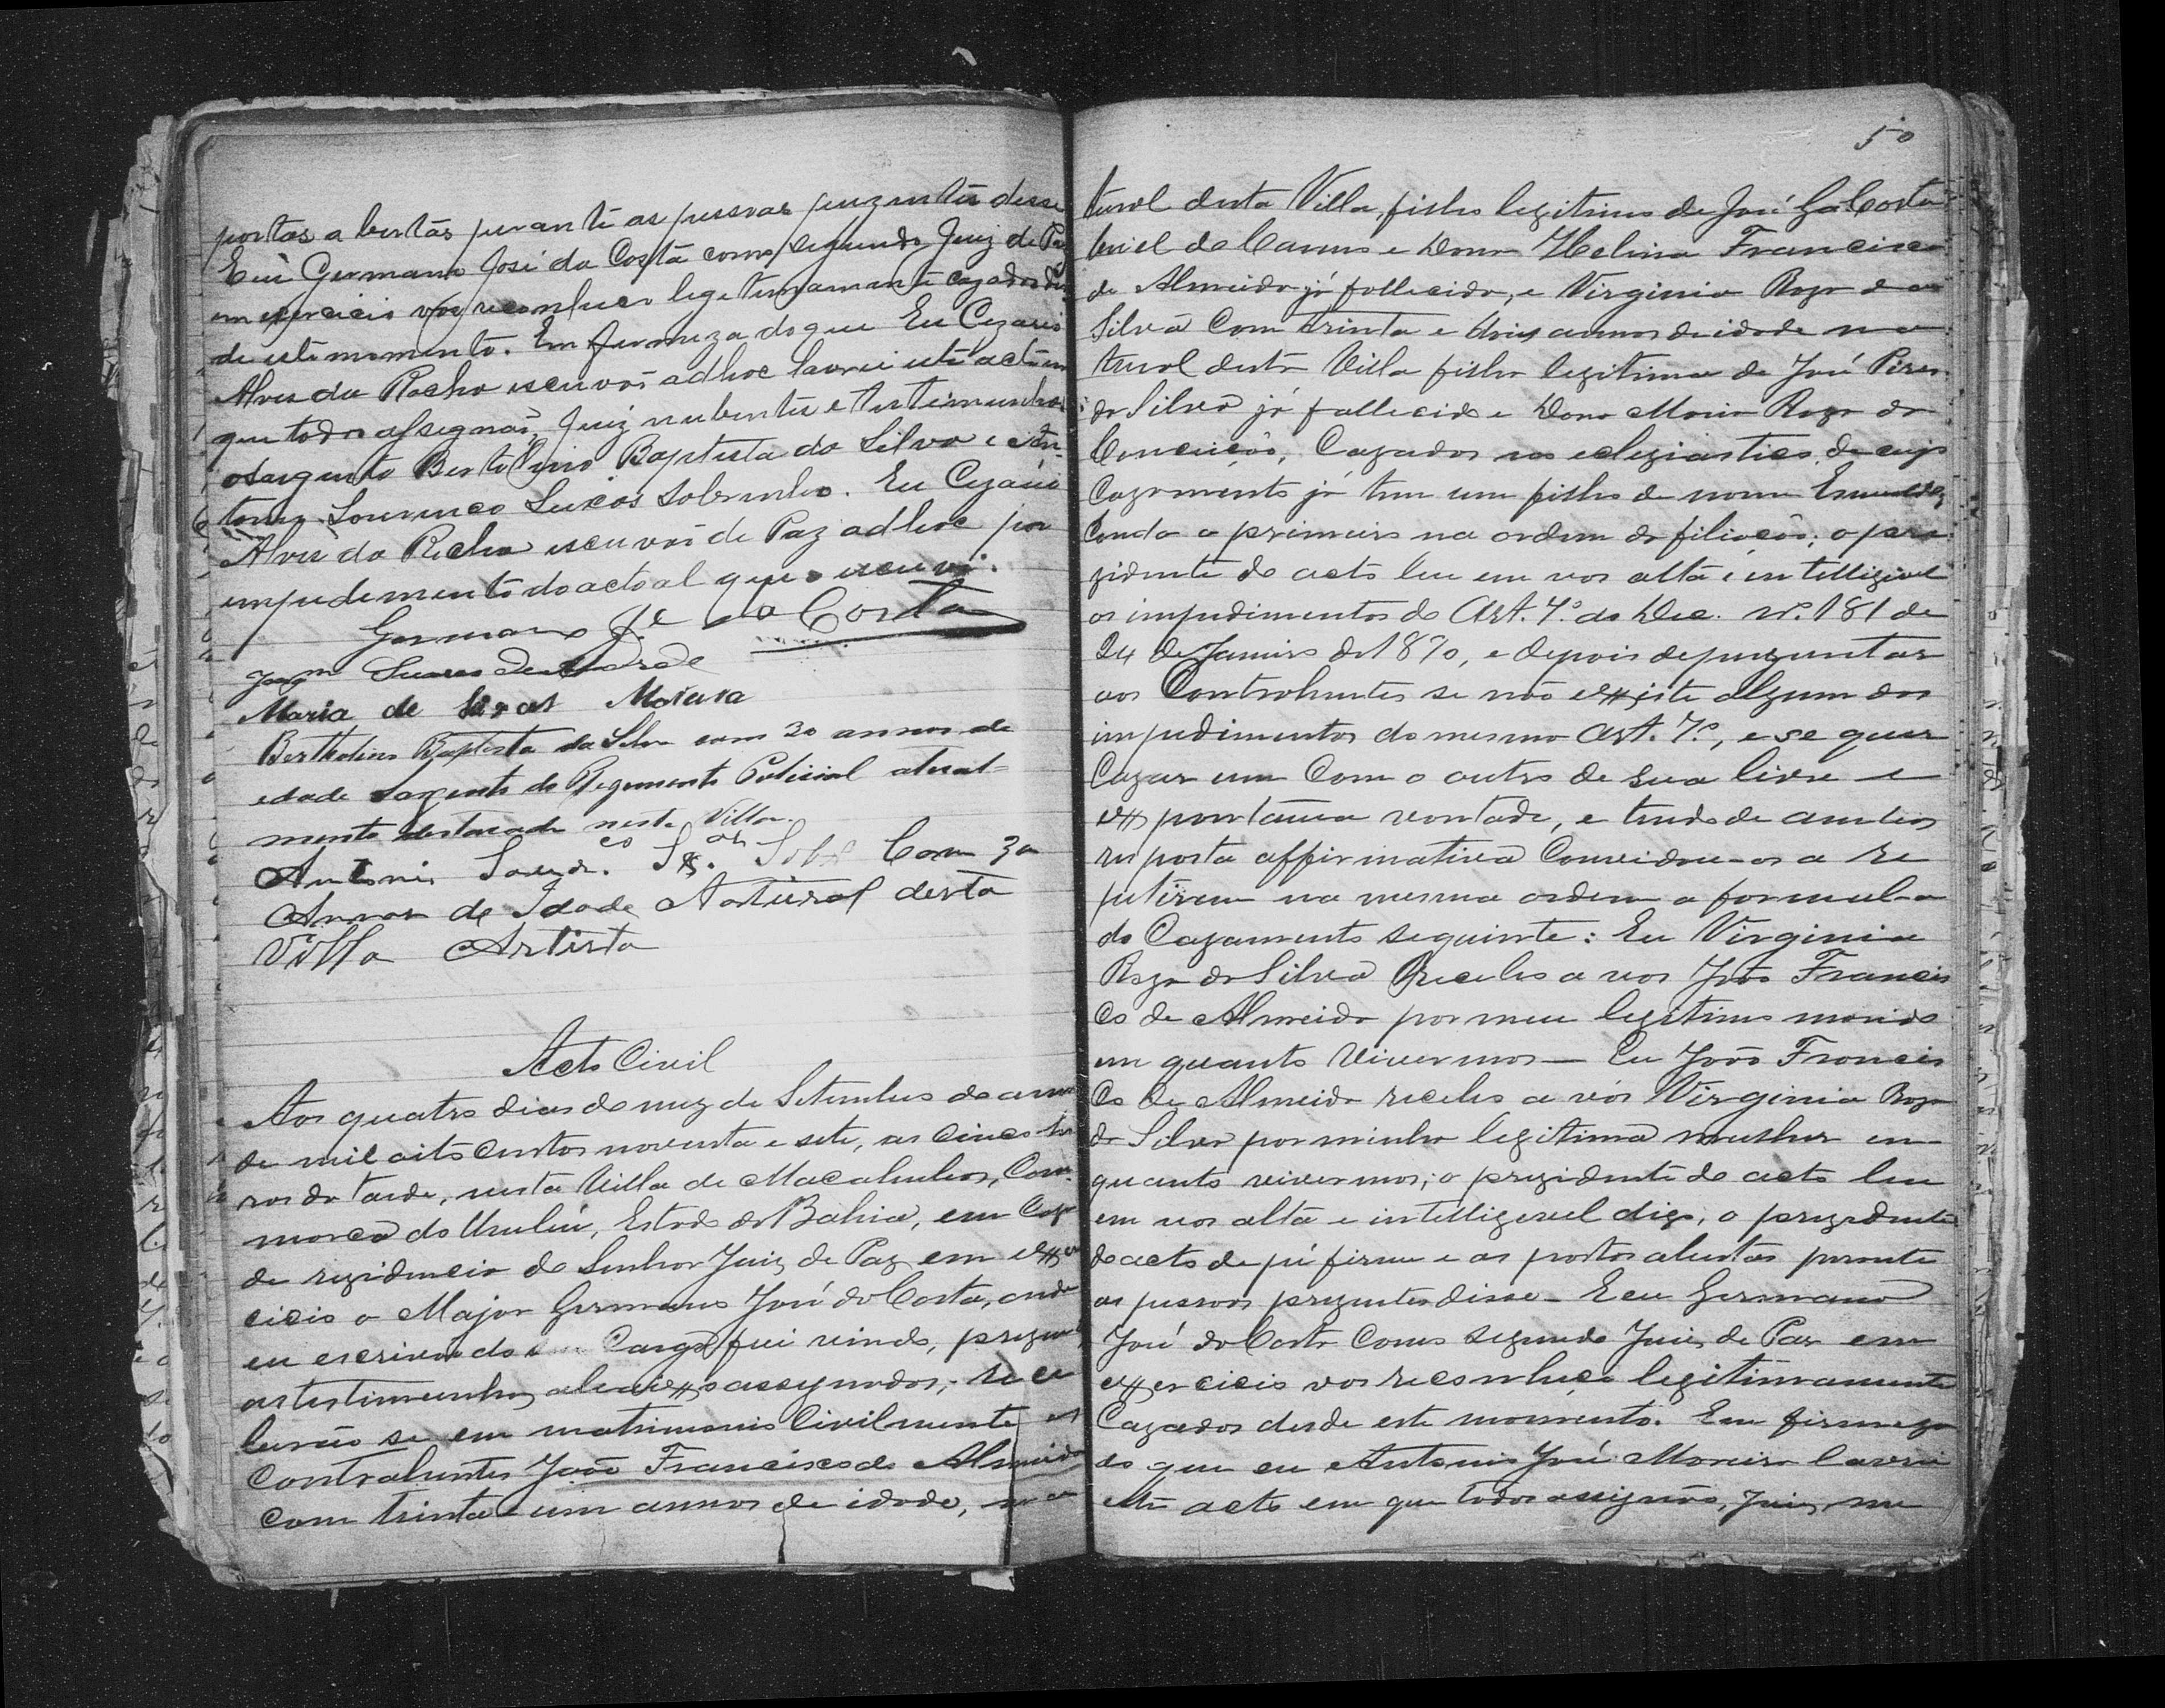 portas abertas perante as pessoas prezentes disse
Eu Germano José da Costa como segundo Juiz de Paz
em exercicio vos reconheco legetimamente cazados des
de este momento. Em firmeza do que Eu Cezario
Alves da Rocha escuvão adhoc lavrei este acto em
que todos assegnão, Juiz nubentes e testemunhas
o sargento Bertolino Baptista da Silva e An-
tonio Lourenço Seixas Sobrinho. Eu Cezario
Alves da Rocha escuvão de Paz adhoc por
empedemento do actoal que o escuvi.
Germano Je. da Costa
Joaqm Soares de Andrade
Maria de Moura
Bertholino Baptista da Silva com 30 annos de
edade sargento do Regimento Policial atual-
mente destacado nesta Villa.
Antonio Sobr Com 30
Annos de Idade Natural desta
Villa Artista
Acto Civil
Aos quatro dias do mez de Setembro do anno
de mil oito centos noventa e sete, as cinco ho
ras da tarde, nesta Villa de Macahubas, Com
marca do Urubú, Estado da Bahia, em Caza
de rezidencia do Senhor Juiz de Paz em exer
cicio o Major Germano José da Costa, onde
eu escrivão do Cargo fui vindo, prezentes
as testimunhas abaixo assegnados, rece
berão se em matrimonio Civilmente os
Contrahentes João Francisco de Almeida
com trinta e um annos de idade, na
50
tural desta Villa, filho legitimo de José Ga Costa
briel de Campos e Dona Helena Francisca
de Almeida já fallecida, e Virginia Roza da
Silva Com trinta e annos de idade na
tural desta Villa filha legitima de José Pires
da Silva já fallecido e Dona Maria Roza da
Conceição, Cazados no eclegiastico, de cujo
Cazamento já tem um filho de nome
Cendo o primeiro na ordem da filiação; o pre
zidente do acto leu em vos alta e intelligivel
os impedimentos do Art. 7º. do Dec. nº. 181 de
24 de Janeiro de 1890, e depois de perguntar
aos Contrahentes se não existe algum dos
impedimentos do mesmo Art. 7º, e se quer
Cazar um Com o outro de sua livre e
expontania vontade, e tendo de ambos
resposta affirmativa Convidou-os a re
petirem na mesma ordem a formula
do Cazamento seguinte: Eu Virginia
Roza da Silva Recebo a vos João Francis
co de Almeida por meu legitimo marido
em quanto vivermos — Eu João Francis
co de Almeida recebo a vós Virginia Roza
da Silva por minha legitima mulher en
quanto vivermos; o prezidente do acto leu
em vos alta e intelligevel digo, o prezidente
do acto de pé firme e as portas abertas perante
as pessoas prezentes disse — E eu Germano
José da Costa Como segundo Juiz de Paz em
exercicio vos reconheço legitimamente
Cazados desde este momento. Em firmeza
do que eu Antonio José Moreira lavrei
este acto em que todos assignão, Juiz, nu